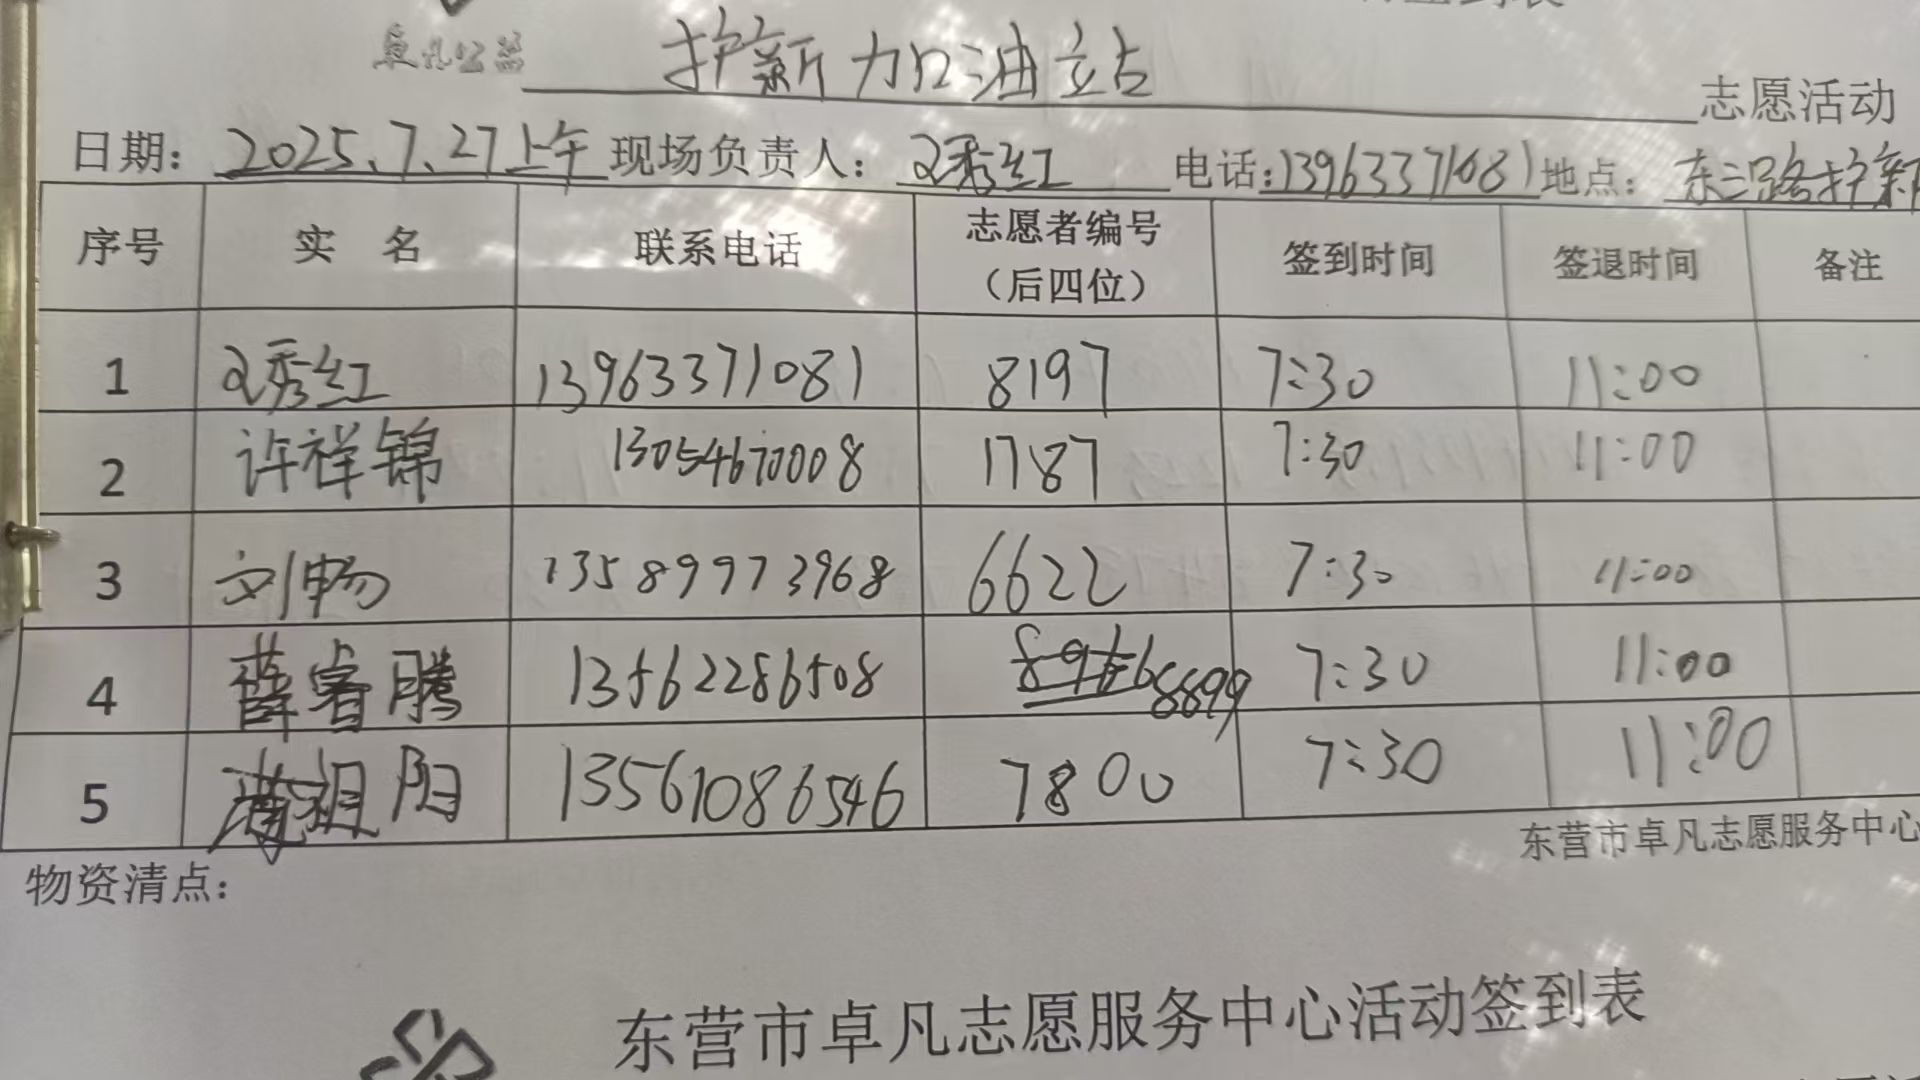 卓凡公益 护新加油站 志愿活动
日期：2025.7.27上午 现场负责人： 秀红 电话：13963371081 地点：东三路护新
序号 实 名 联系电话 志愿者编号（后四位） 签到时间 签退时间 备注
1 秀红 13963371081 8197 7:30 11:00
2 许祥锦 13054670008 1787 7:30 11:00
3 刘畅 13589973968 6622 7:30 11:00
4 薛睿腾 13562286508 8899 7:30 11:00
5 祖阳 13561086546 7800 7:30 11:00
东营市卓凡志愿服务中心
物资清点：
东营市卓凡志愿服务中心活动签到表